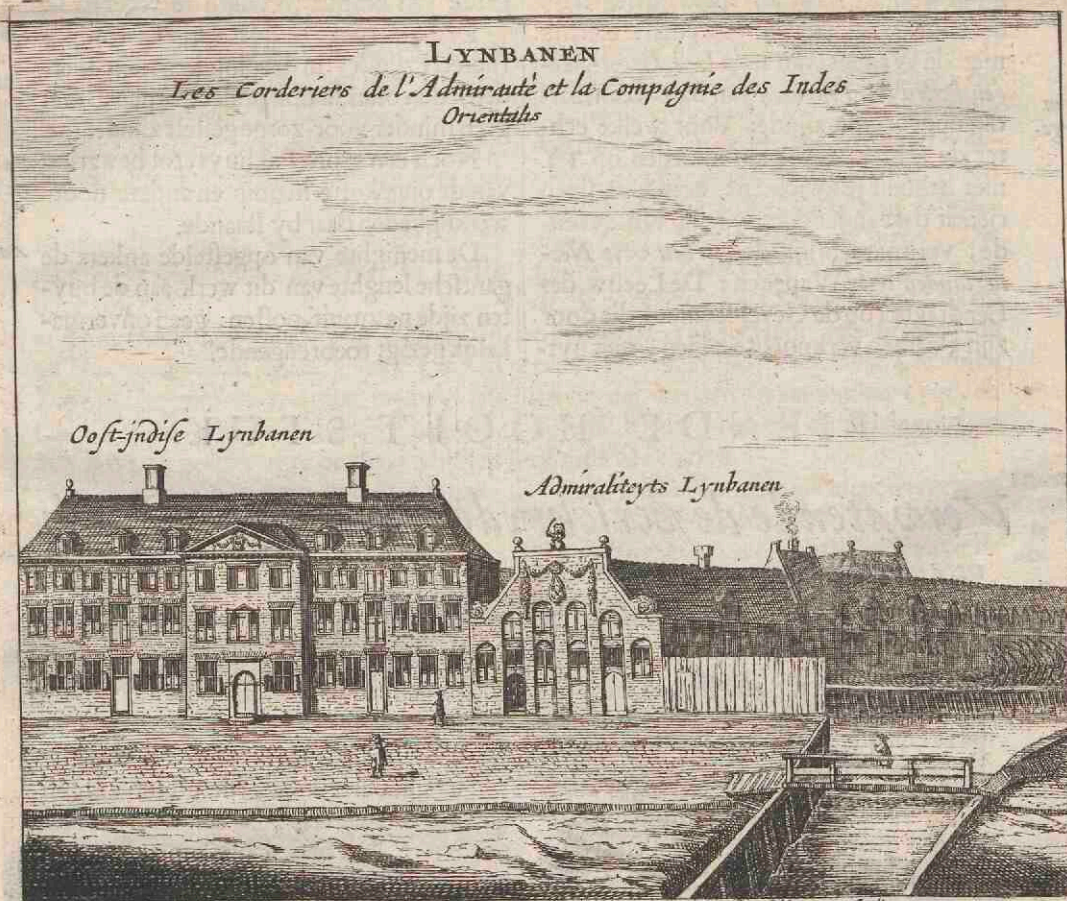 LYNBANEN
Les Corderiers de l'Admirautè et la Compagnie des Indes
Orientalis
Oost-jndise Lynbanen
Admiraliteyts Lynbanen